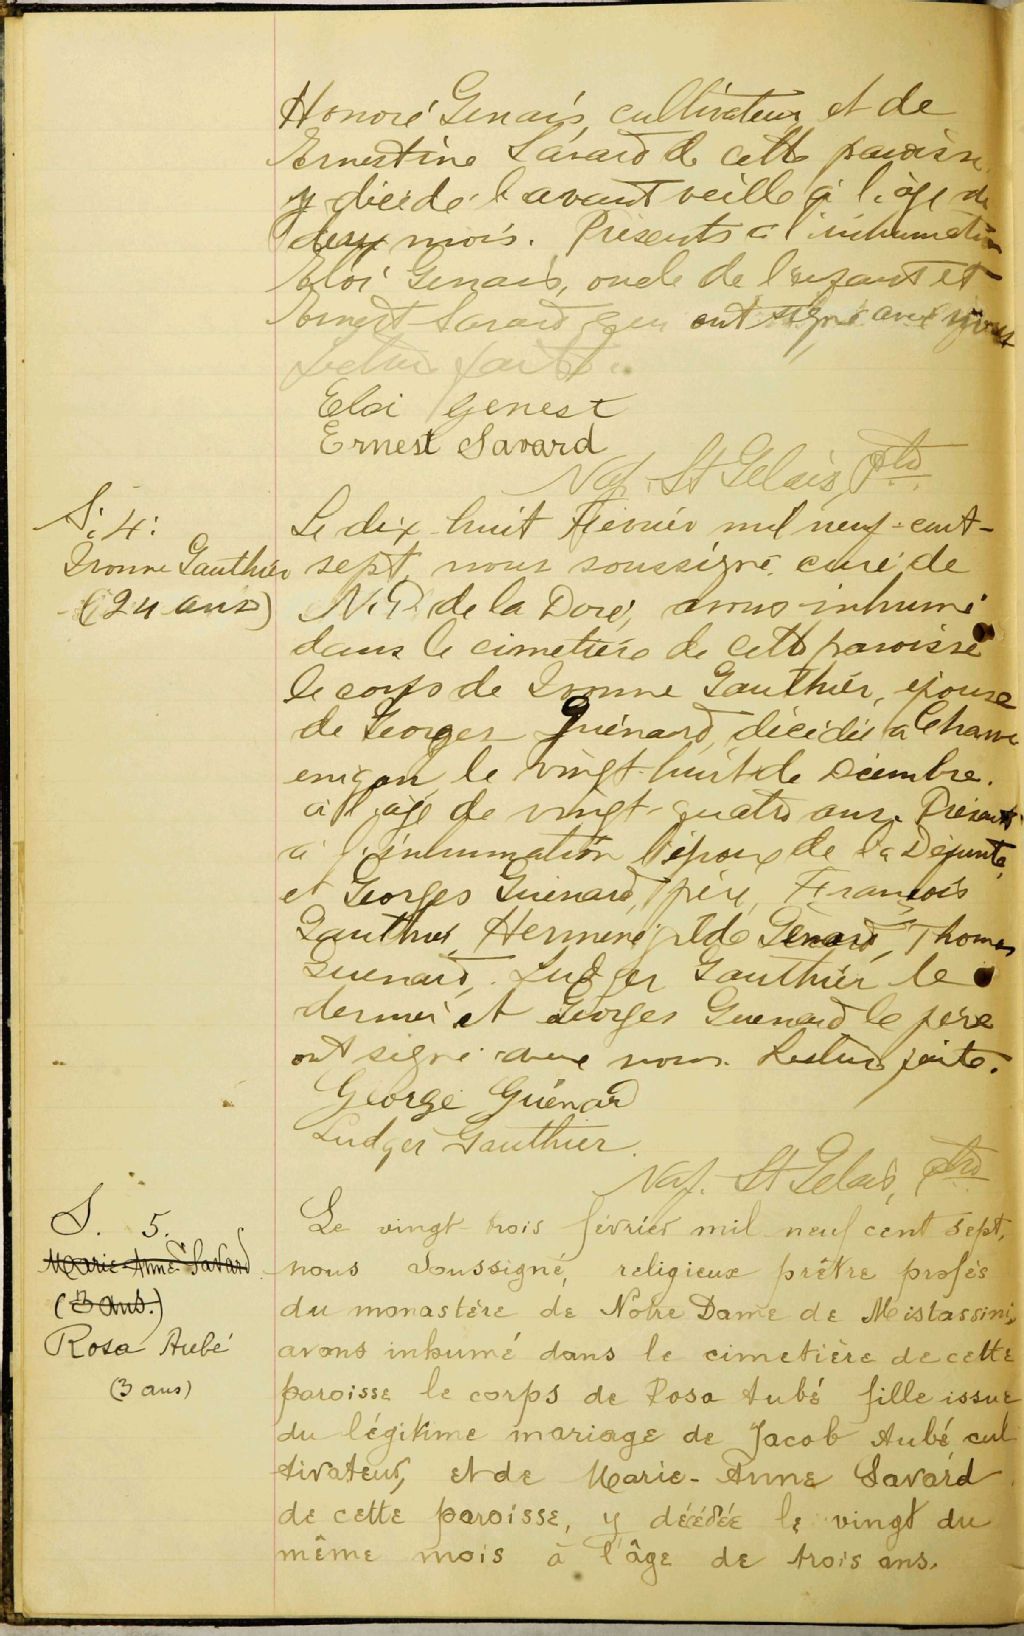 Honoré Genais, cultivateur et de
Ernestine Savard de cette paroisse
y décédé l'avant veille à l'âge de
deux mois. Présents à l'inhumation
Eloi Genais, oncle de l'enfant et
Ernest Savard qui ont signé avec nous
Lecture faite.
Eloi Genest
Ernest Savard
Naz. St Gelais, Ptre
S. 4:
Ivonne Gauthier
(24 ans)
Le dix-huit Février mil neuf-cent-
sept nous soussigné curé de
N.D. de la Doré, avons inhumé
dans le cimetière de cette paroisse
le corps de Ivonne Gauthier, épouse
de Georges Guénard, décédée à Chawi
enigan, le vingt-huit de Décembre.
à l'âge de vingt-quatre ans. Présents
à l'inhumation l'époux de la Défunte,
et Georges Guénard, père, François
Gauthier, Herménégilde Thomas
Guenard, Ludger Gauthier le
dernier et Georges Guenard le père
ont signé avec nous. Lecture faite.
George Guénard
Ludger Gauthier.
Naz. St Gelais, Ptre
S. 5.
Marie-Anne Savard
(3 ans.)
Rosa Aubé
(3 ans)
Le vingt trois février mil neuf cent sept,
nous soussigné, religieux prêtre profès
du monastère de Notre Dame de Mistassini,
avons inhumé dans le cimetière de cette
paroisse le corps de Rosa Aubé fille issue
du légitime mariage de Jacob Aubé, cul
tivateur, et de Marie-Anne Savard
de cette paroisse, y décédée le vingt du
même mois à l'âge de trois ans.